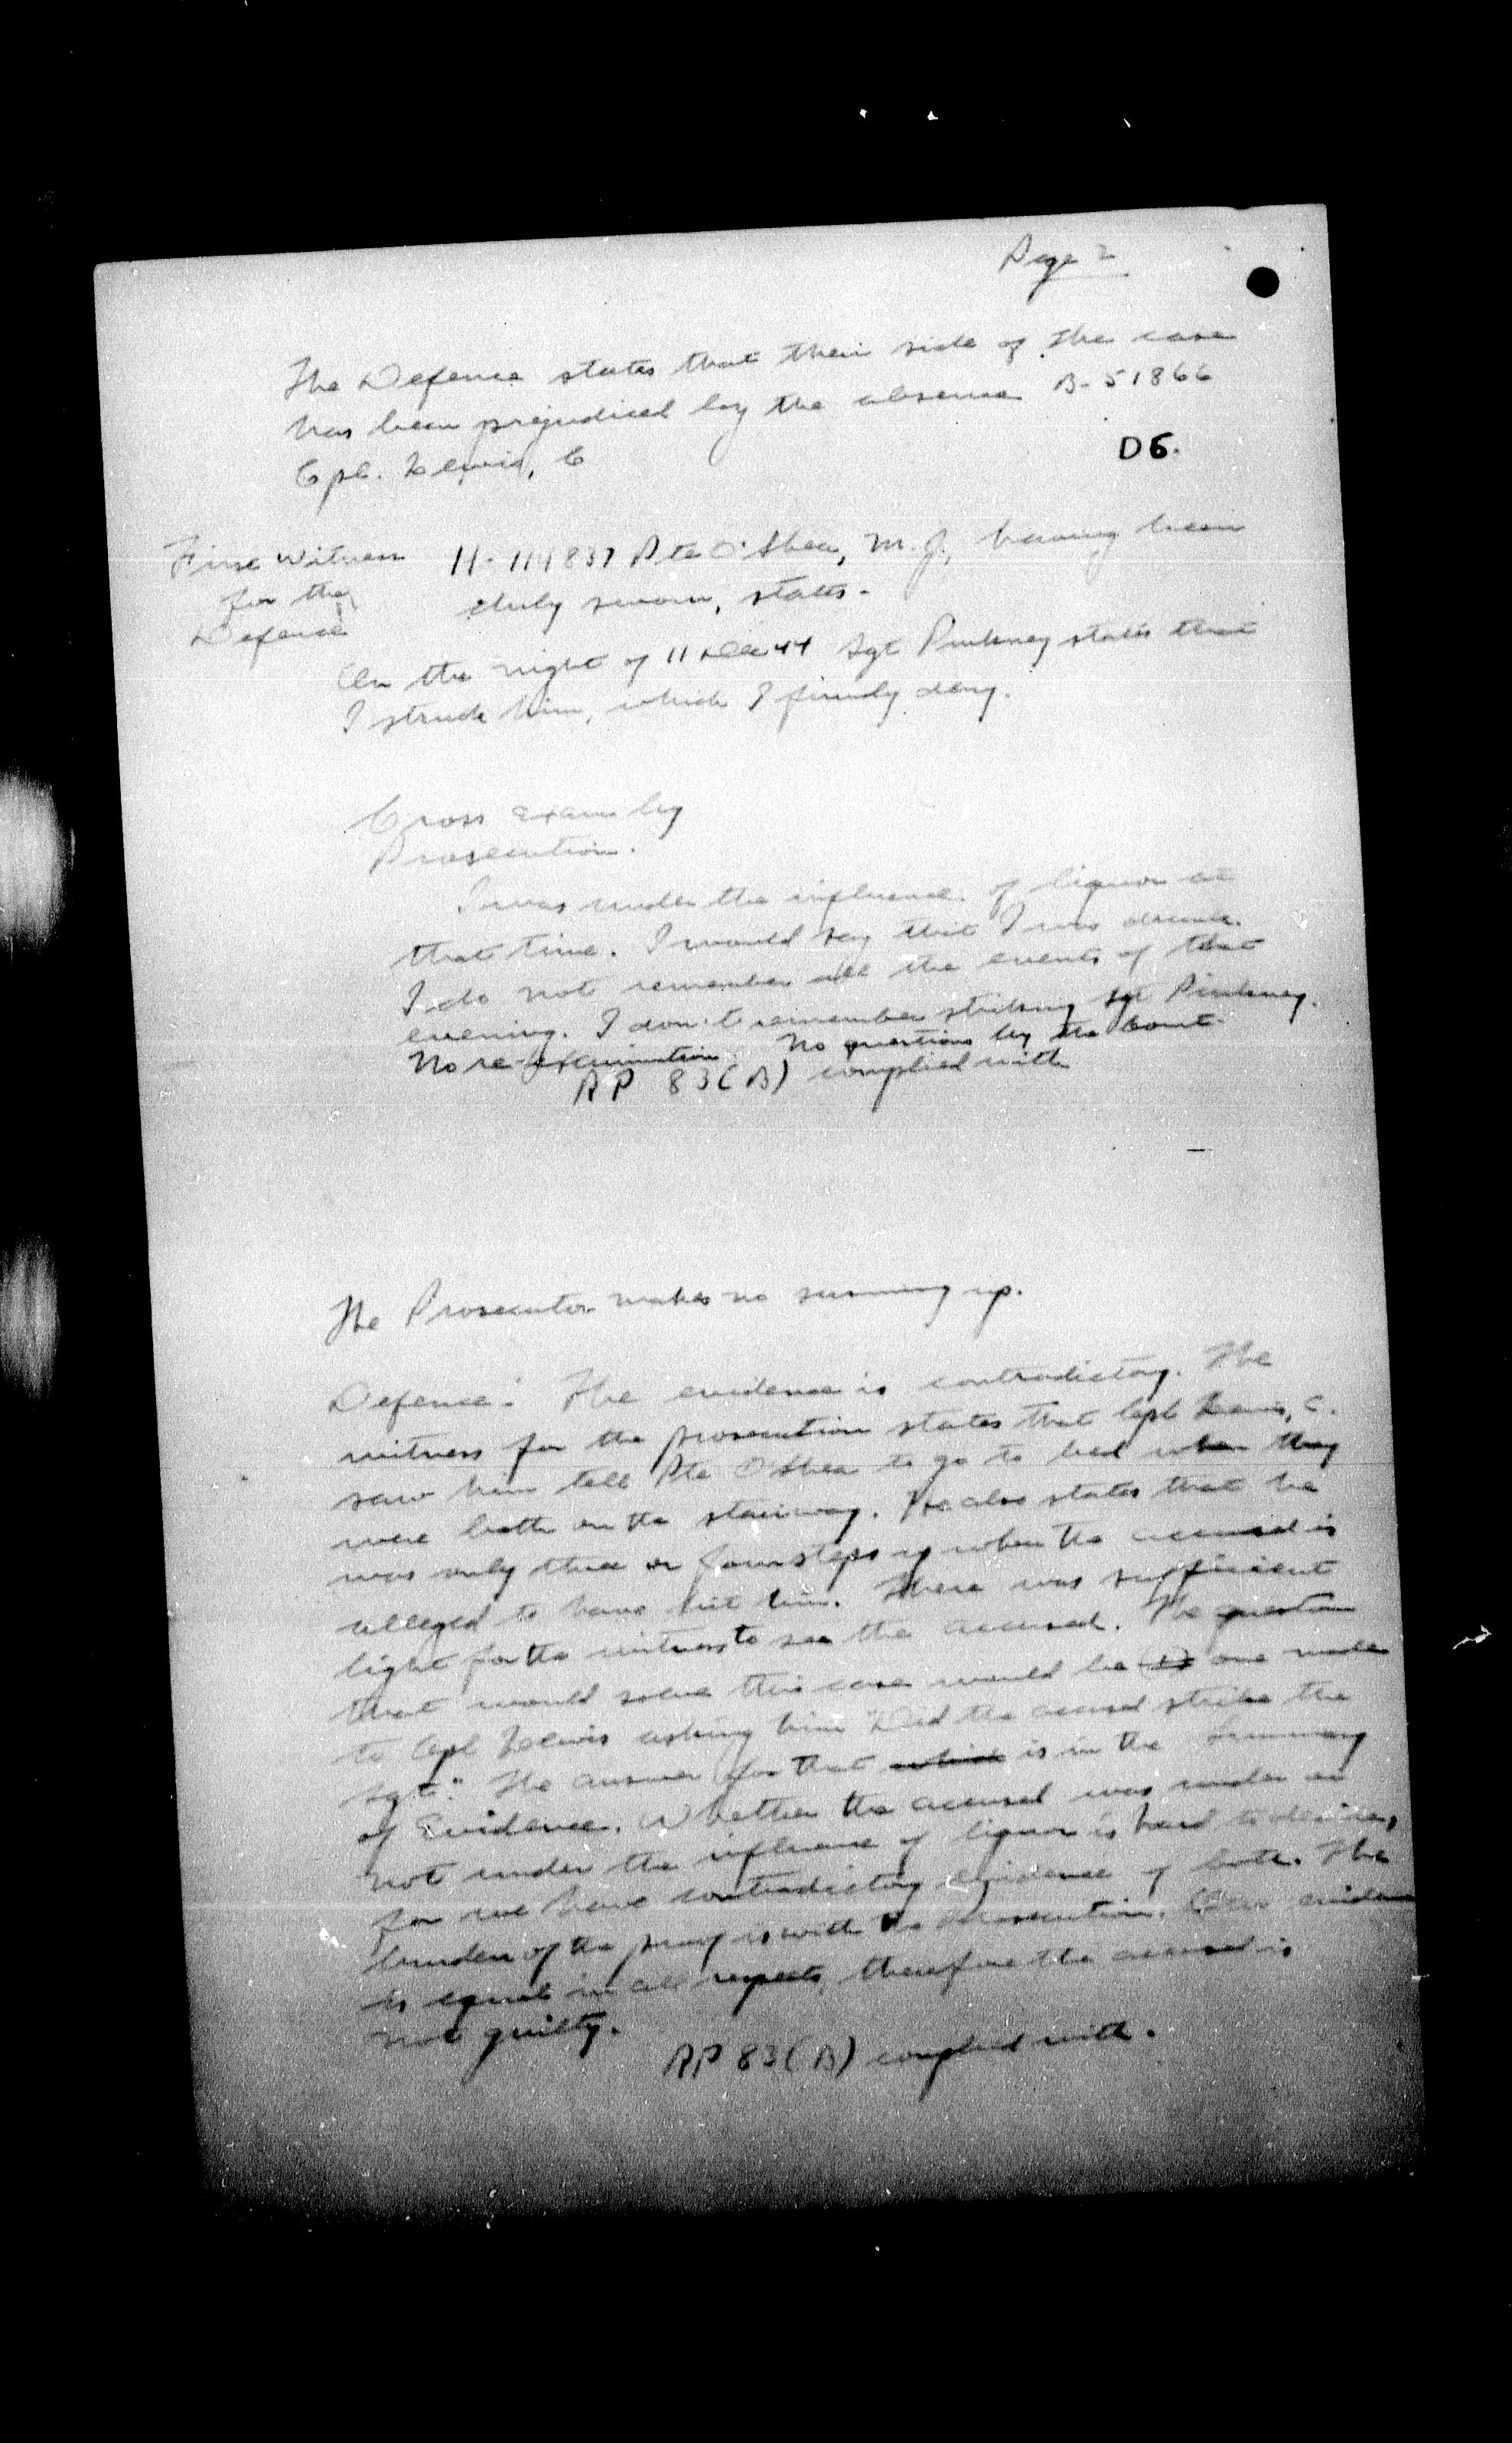 Page 2
The Defence states that their side of the case
has been prejudiced by the absence B-51866
Cpl. Lewis, C
D6.
First Witness
for the
Defence
H-114837 Pte O'Shea, M.J., having been
duly sworn, states-
On the night of 11 Dec 44 Sgt Pinkney states that
I struck him, which I firmly deny.
Cross exam by
Prosecution.
I was under the influence of liquor at
that time. I would say that I was drunk.
I do not remember all the events of that
evening. I don't remember striking Sgt Pinkney.
No re-examination. No questions by the Court
RP 83(B) complied with
The Prosecutor makes no summing up.
Defence: The evidence is contradictory. The
witness for the prosecution states that Cpl Lewis, C.
saw him tell Pte O'Shea to go to bed when they
were both on the stairway. He also states that he
was only three or four steps up when the accused is
alleged to have hit him. There was sufficient
light for the witness to see the accused. The question
that would solve this case would be one made
to Cpl Lewis asking him "Did the accused strike the
Sgt." The answer for that which is in the Summary
of Evidence. Whether the accused was under or
not under the influence of liquor is hard to decide,
for we have contradictory evidence of both. The
burden of the proof is with the prosecution. Our evidence
is equal in all respects, therefore the accused is
not guilty.
RP 83(B) complied with.